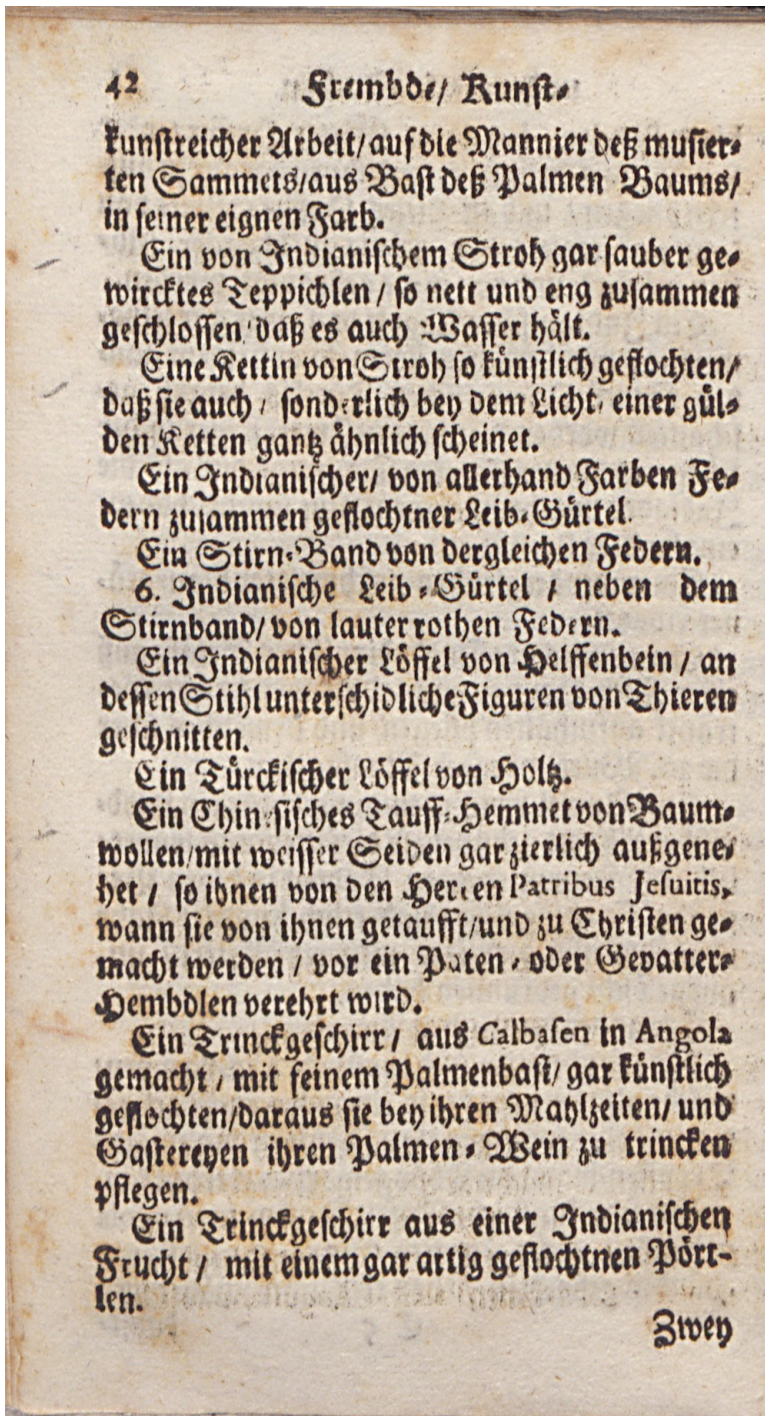 42 Frembde/ Kunst-
kunstreicher Arbeit/ auf die Mannier deß musier-
ten Sammets/ aus Bast deß Palmen Baums/
in seiner eignen Farb.
Ein von Indianischem Stroh gar sauber ge-
wircktes Teppichlen / so nett und eng zusammen
geschlossen/ daß es auch Wasser hält.
Eine Kettin von Stroh so künstlich geflochten/
daß sie auch / sonderlich bey dem Licht/ einer gül-
den Ketten gantz ähnlich scheinet.
Ein Indianischer/ von allerhand Farben Fe-
dern zusammen geflochtner Leib-Gürtel.
Ein Stirn-Band von dergleichen Federn.
6. Indianische Leib-Gürtel / neben dem
Stirnband/ von lauter rothen Federn.
Ein Indianischer Löffel von Helffenbein / an
dessen Stihl unterschidliche Figuren von Thieren
geschnitten.
Ein Türckischer Löffel von Holtz.
Ein Chinesisches Tauff-Hemmet von Baum-
wollen/ mit weisser Seiden gar zierlich außgene-
het / so ihnen von den Herren Patribus Jesuitis,
wann sie von ihnen getaufft/ und zu Christen ge-
macht werden / vor ein Paten- oder Gevatter-
Hembdlen verehrt wird.
Ein Trinckgeschirr / aus Calbasen in Angola
gemacht / mit feinem Palmenbast/ gar künstlich
geflochten/ daraus sie bey ihren Mahlzeiten/ und
Gastereyen ihren Palmen-Wein zu trincken
pflegen.
Ein Trinckgeschirr aus einer Indianischen
Frucht / mit einem gar artig geflochtnen Pört-
len.
Zwey